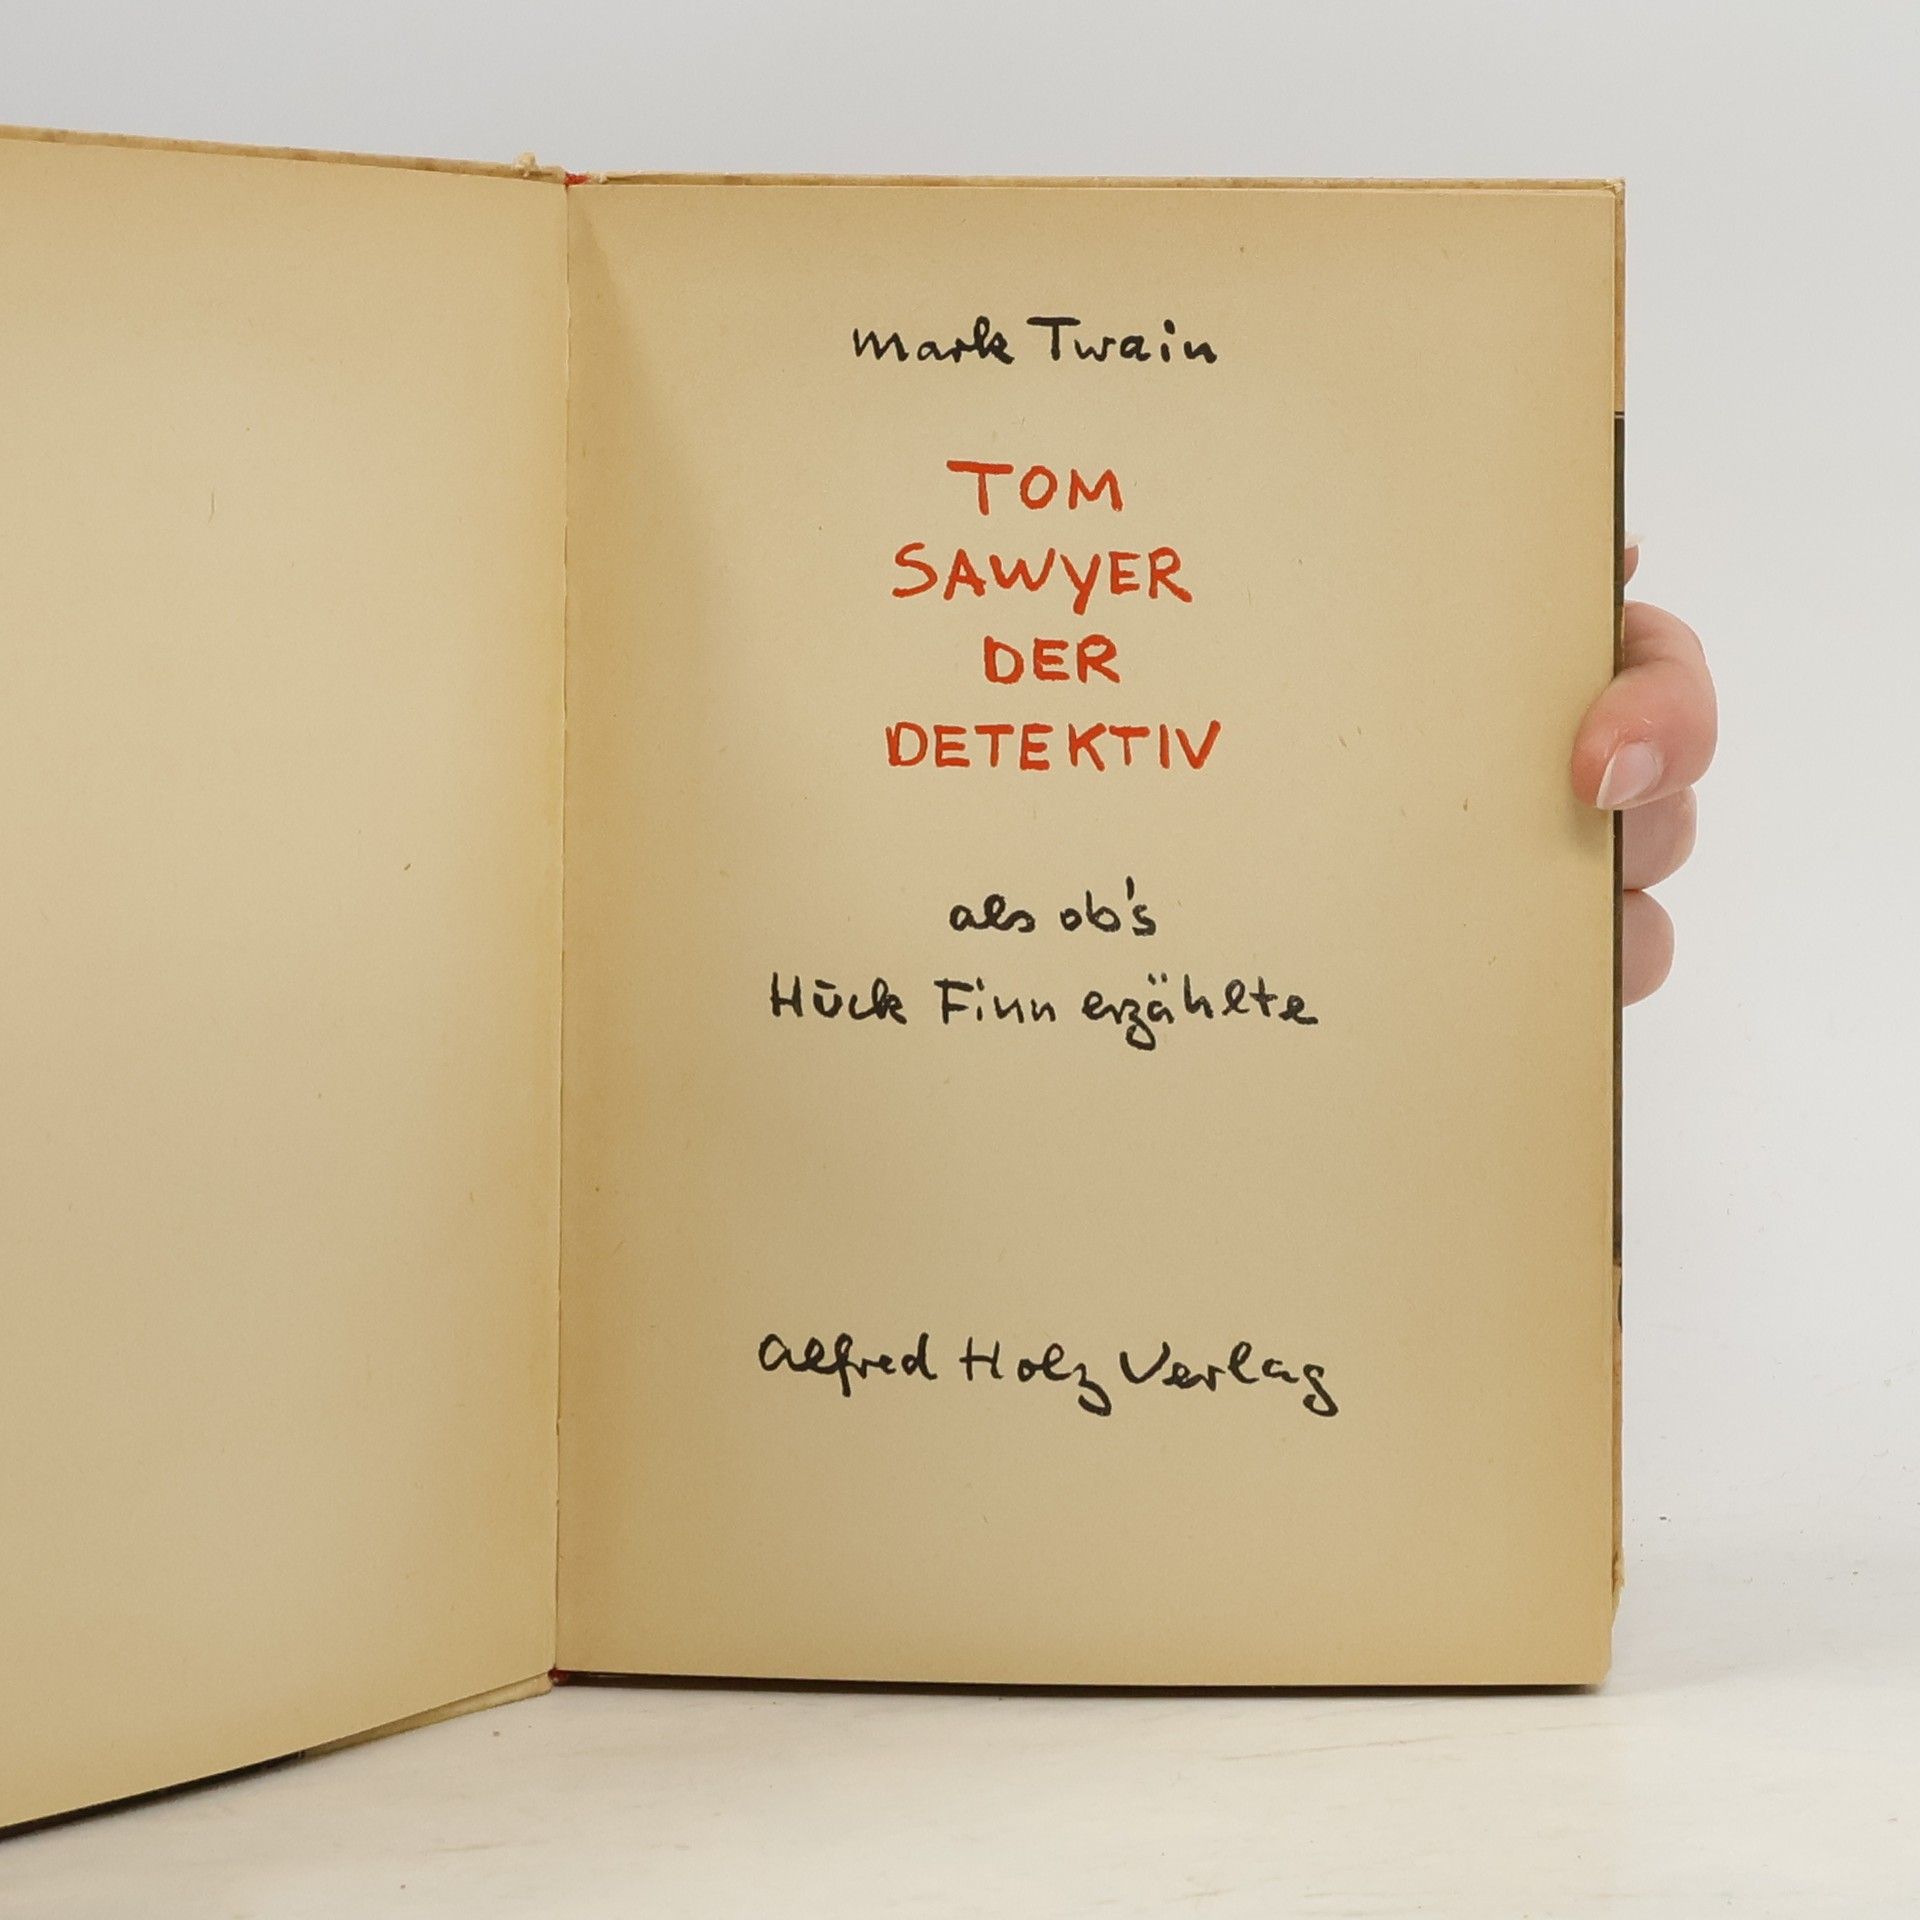 Mark Twain
TOM
SAWYER
DER
DETEKTIV
als ob's
Hūck Finn erzählte
Alfred Holz Verlag